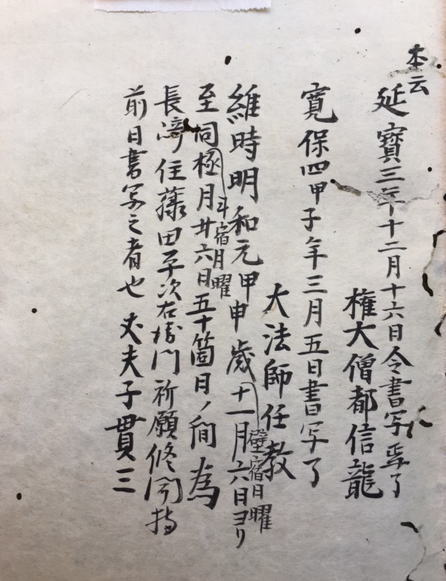 本云
延寶三年十二月十六日令書写畢了
権大僧都信龍
寛保四甲子年三月五日書写了
大法師任教
維時明和元甲申歳十一月六日ヨリ
壁宿日曜
至同極月廿六日五十箇日ノ間為
斗宿月曜
長﨑住藤田平次右衛門祈願修
前日書写之者也 丈夫子貫三